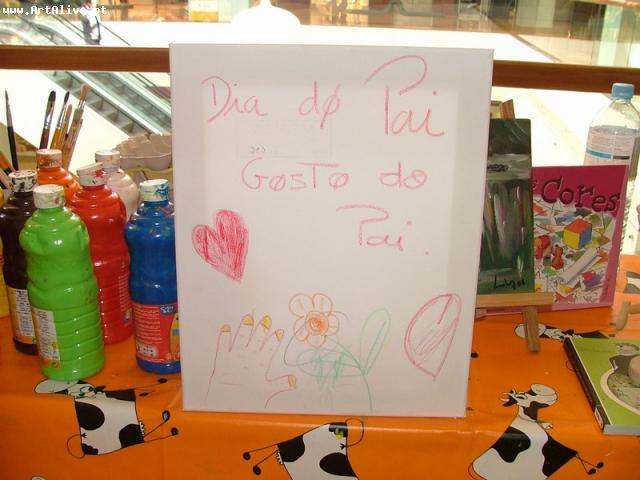 www.ArtAlive.pt
Dia do Pai
Gosto do
Pai.
Cores
Luza